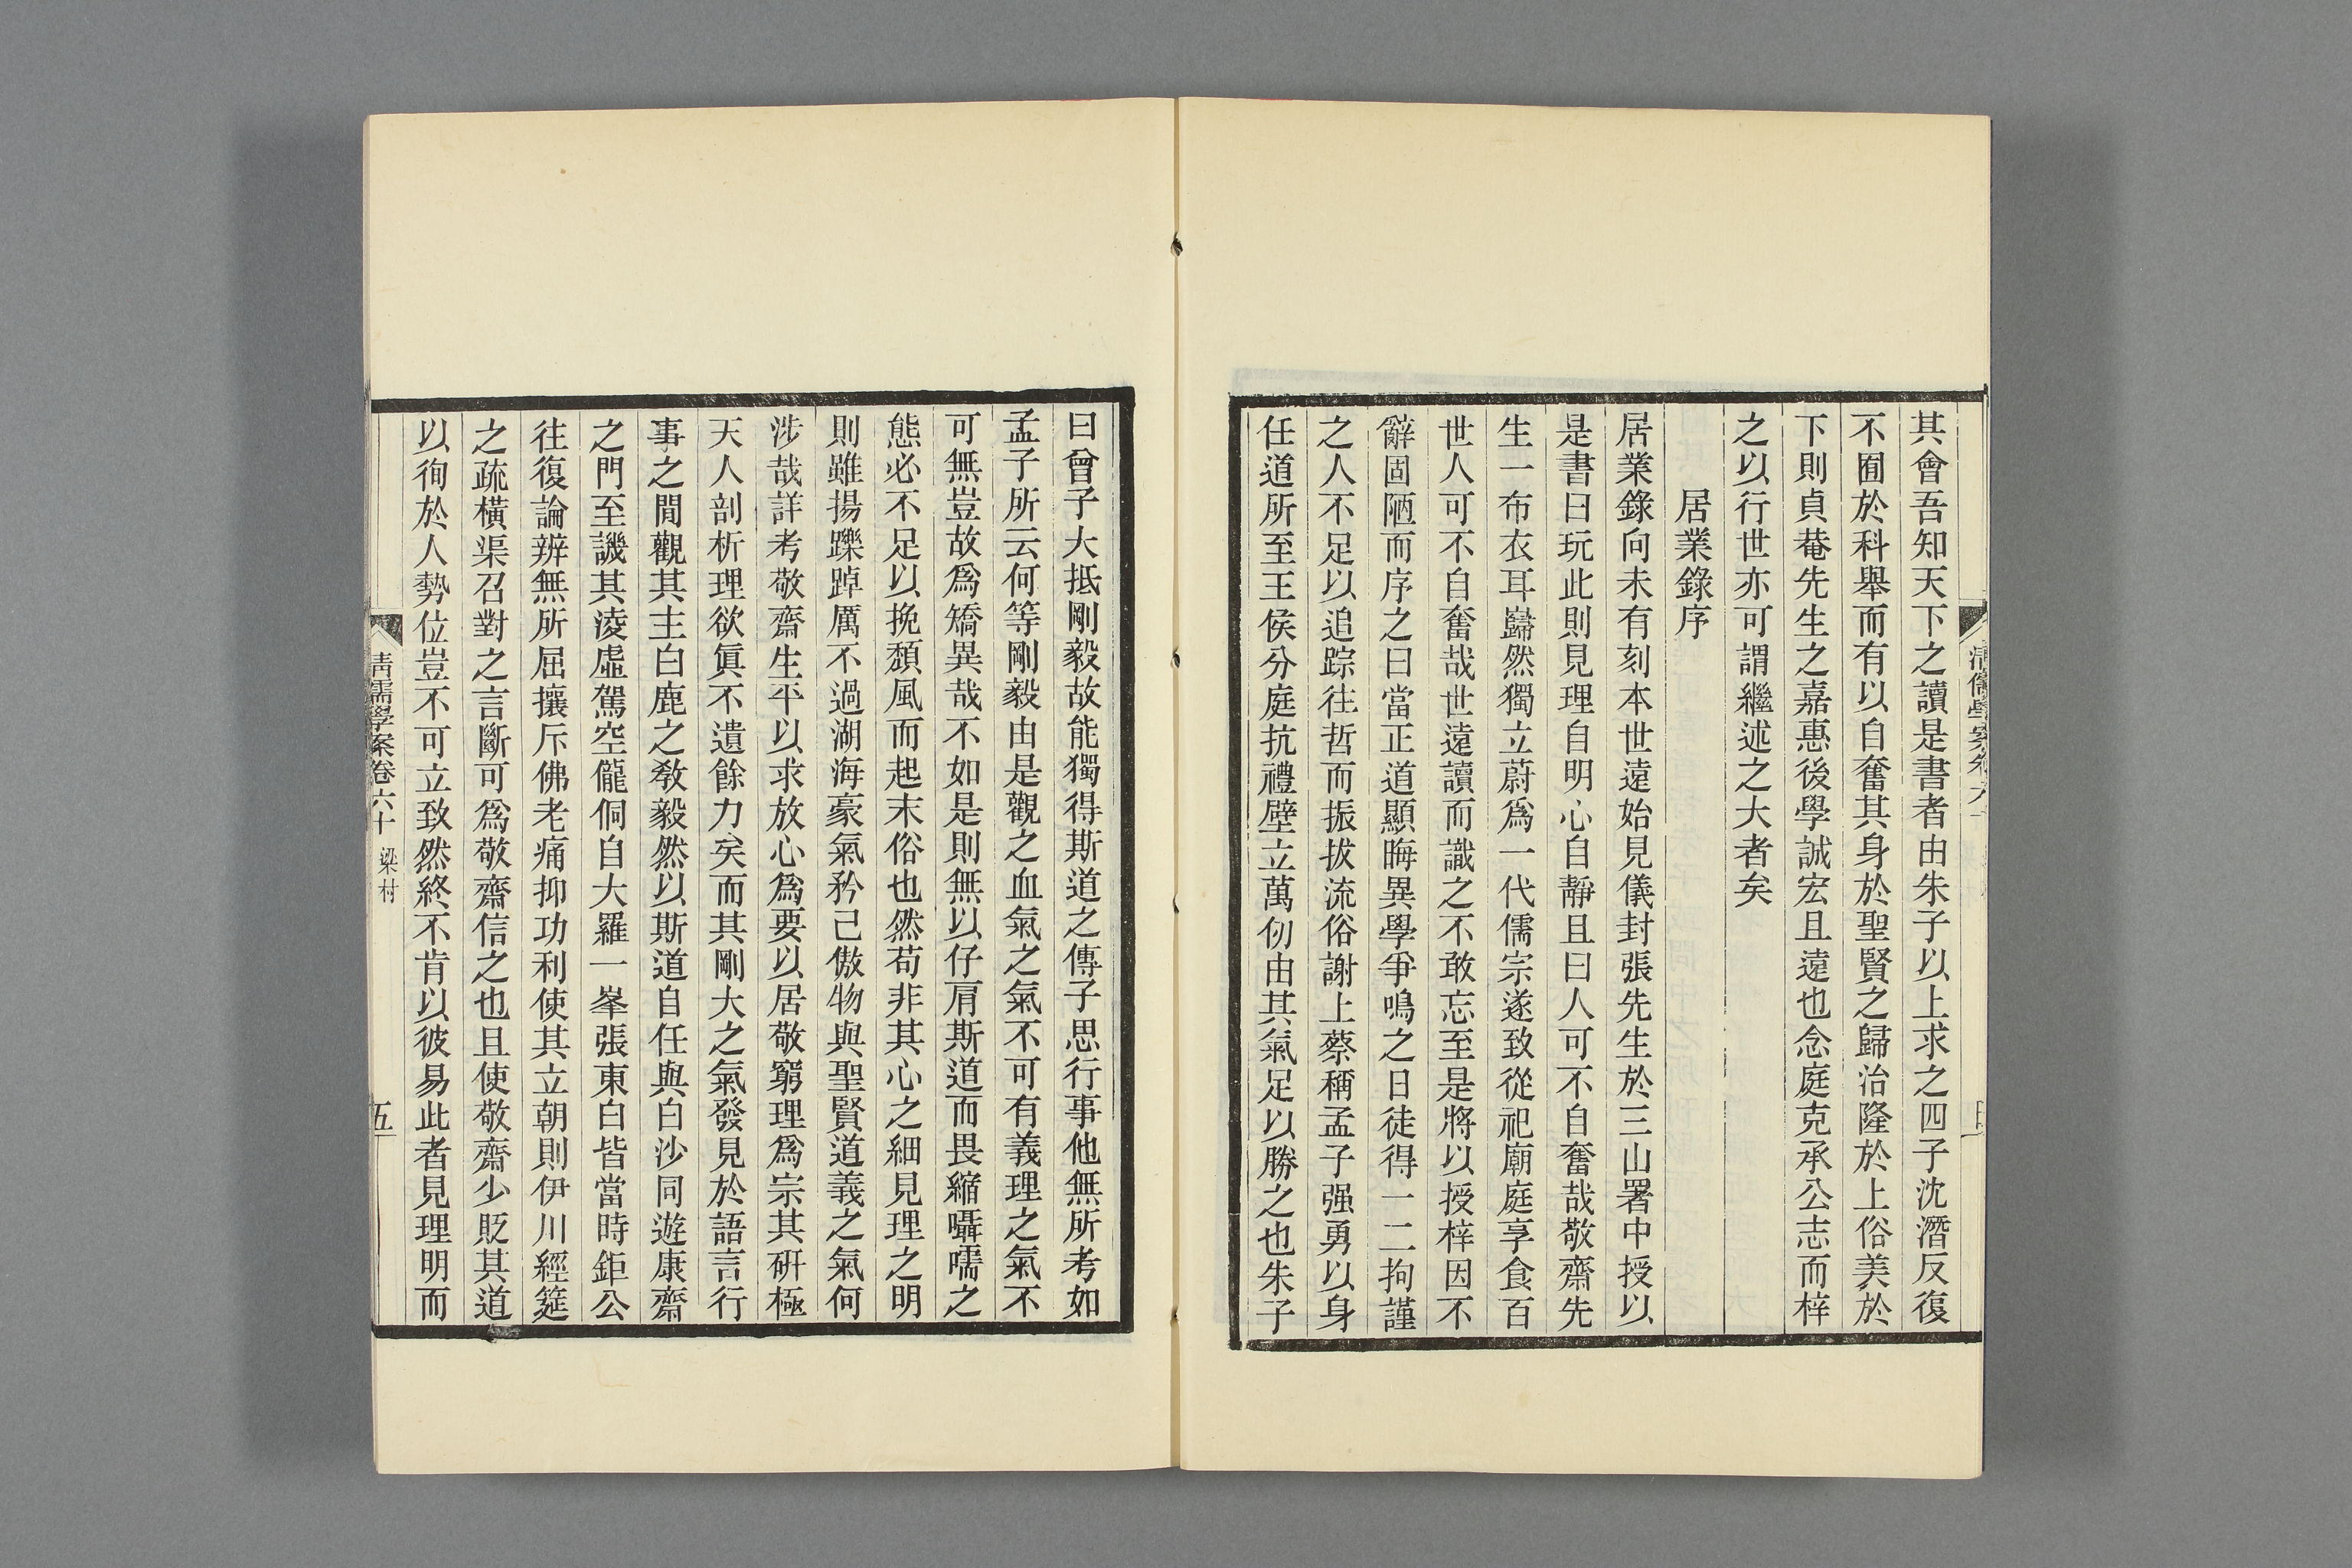 其會吾知天下之讀是書者由朱子以上求之四子沈潛反復
不囿於科舉而有以自奮其身於聖賢之歸治隆於上俗美於
下則貞菴先生之嘉惠後學誠宏且遠也念庭克承公志而梓
之以行世亦可謂繼述之大者矣
居業錄序
居業錄向未有刻本世遠始見儀封張先生於三山署中授以
是書曰玩此則見理自明心自靜且曰人可不自奮哉敬齋先
生一布衣耳巋然獨立蔚爲一代儒宗遂致從祀廟庭享食百
世人可不自奮哉世遠讀而識之不敢忘至是將以授梓因不
辭固陋而序之曰當正道顯晦異學爭鳴之日徒得一二拘謹
之人不足以追踪往哲而振拔流俗謝上蔡稱孟子强勇以身
任道所至王侯分庭抗禮壁立萬仞由其氣足以勝之也朱子
曰曾子大抵剛毅故能獨得斯道之傳子思行事他無所考如
孟子所云何等剛毅由是觀之血氣之氣不可有義理之氣不
可無豈故爲矯異哉不如是則無以仔肩斯道而畏縮囁嚅之
態必不足以挽頹風而起末俗也然苟非其心之細見理之明
則雖揚躒踔厲不過湖海豪氣矜己傲物與聖賢道義之氣何
涉哉詳考敬齋生平以求放心爲要以居敬窮理爲宗其硏極
天人剖析理欲眞不遺餘力矣而其剛大之氣發見於語言行
事之閒觀其主白鹿之敎毅然以斯道自任與白沙同遊康齋
之門至譏其淩虛駕空儱侗自大羅一峯張東白皆當時鉅公
往復論辨無所屈攘斥佛老痛抑功利使其立朝則伊川經筵
之疏橫渠召對之言斷可爲敬齋信之也且使敬齋少貶其道
以徇於人勢位豈不可立致然終不肯以彼易此者見理明而
淸儒學案卷六十 梁村
五